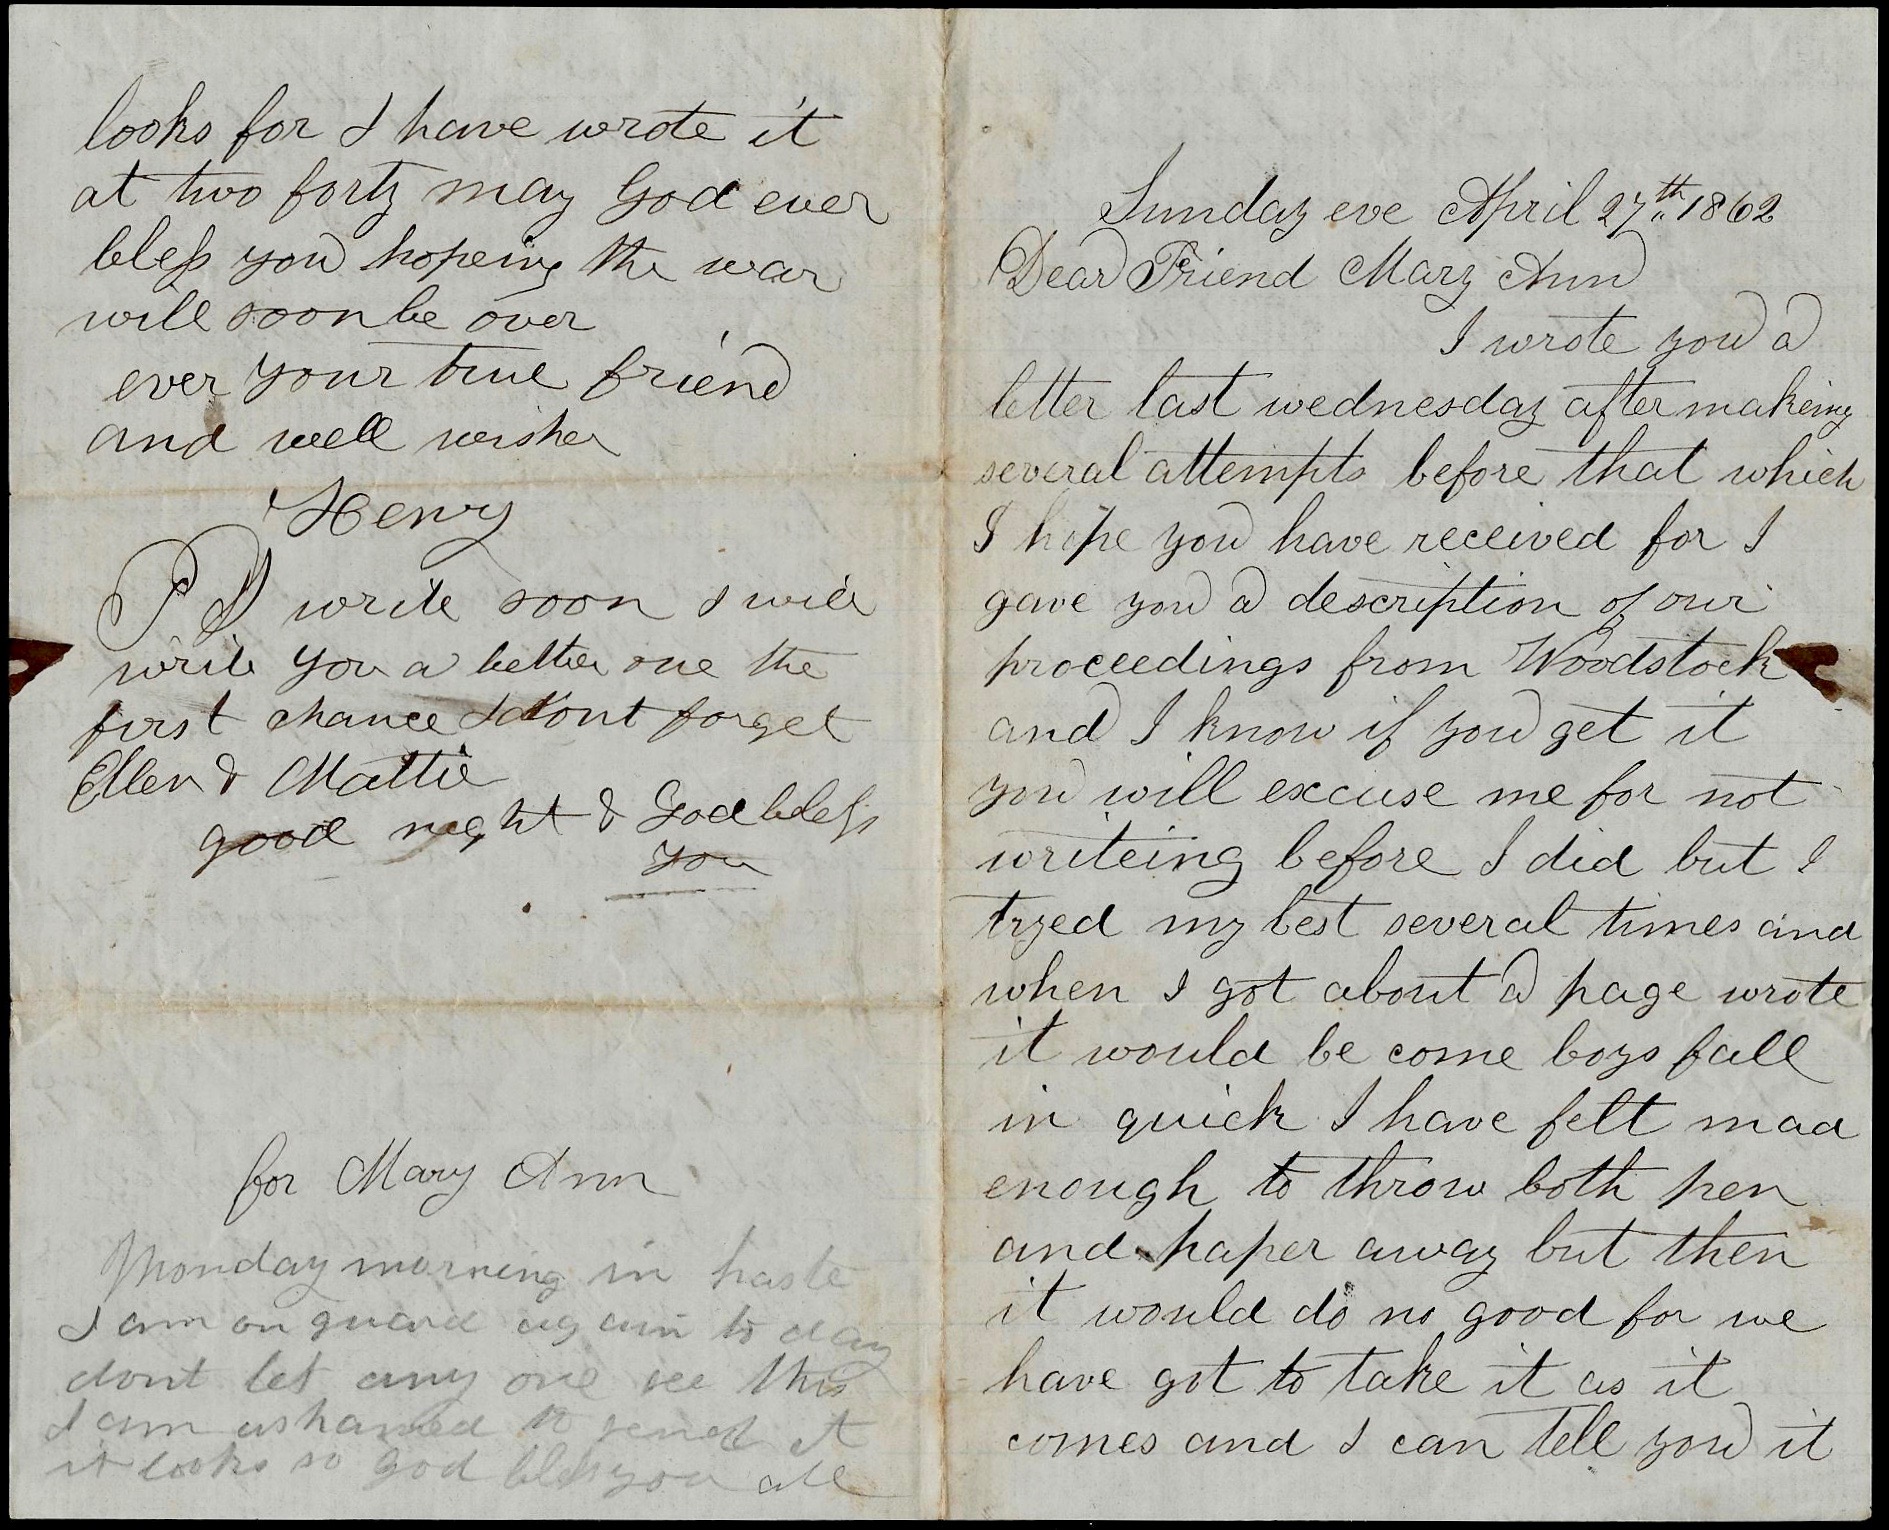 Sunday eve April 27th 1862
Dear Friend Mary Ann
I wrote you a
letter last wednesday after makeing
several attempts before that which
I hope you have received for I
gave you a description of our
proceedings from Woodstock
and I know if you get it
you will excuse me for not
writeing before I did but I
tryed my best several times and
when I got about a page wrote
it would be come boys fall
in quick I have felt mad
enough to throw both pen
and paper away but then
it would do no good for we
have got to take it as it
comes and I can tell you it
looks for I have wrote it
at two forty may God ever
bless you hopeing the war
will soon be over
ever your true friend
and well wisher
Henry
PS write soon I will
write you a better one the
first chance I dont forget
Ellen & Mattie
good night & God bless
you
for Mary Ann
Monday morning in haste
I am on guard again to day
dont let any one see this
I am ashamed to send it
it looks so god bless you all